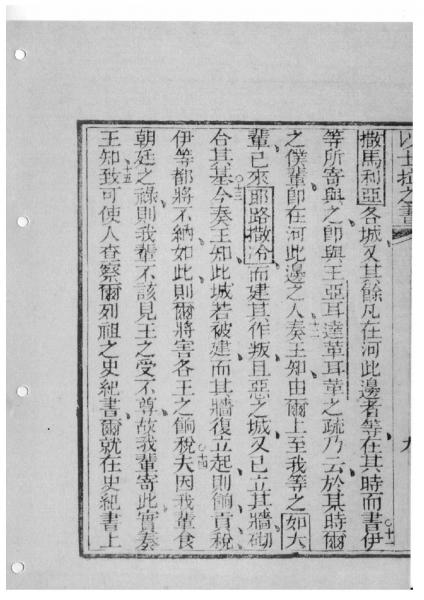 以士拉之書 九
撒馬利亞各城又其餘凡在河此邊者等在其時而書○十一伊
等所寄與之即與王亞耳達革耳革之疏乃云於某時爾
之僕輩即在河此邊之人十二奏王知由爾上至我等之如大
輩已來耶路撒冷而建其作叛且惡之城又已立其牆砌
合其基○十三今奏王知此城若被建而其牆復立起則餉貢稅
伊等都將不納如此則爾將害各王之餉稅○十四夫因我輩食
朝廷之祿則我輩不該見王之受不尊故我輩寄此實奏
王知十五致可使人查察爾列祖之史紀書爾就在史紀書上